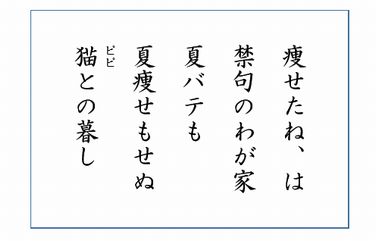 痩せたね、は
禁句のわが家
夏バテも
夏痩せもせぬ
猫との暮し
ピピ